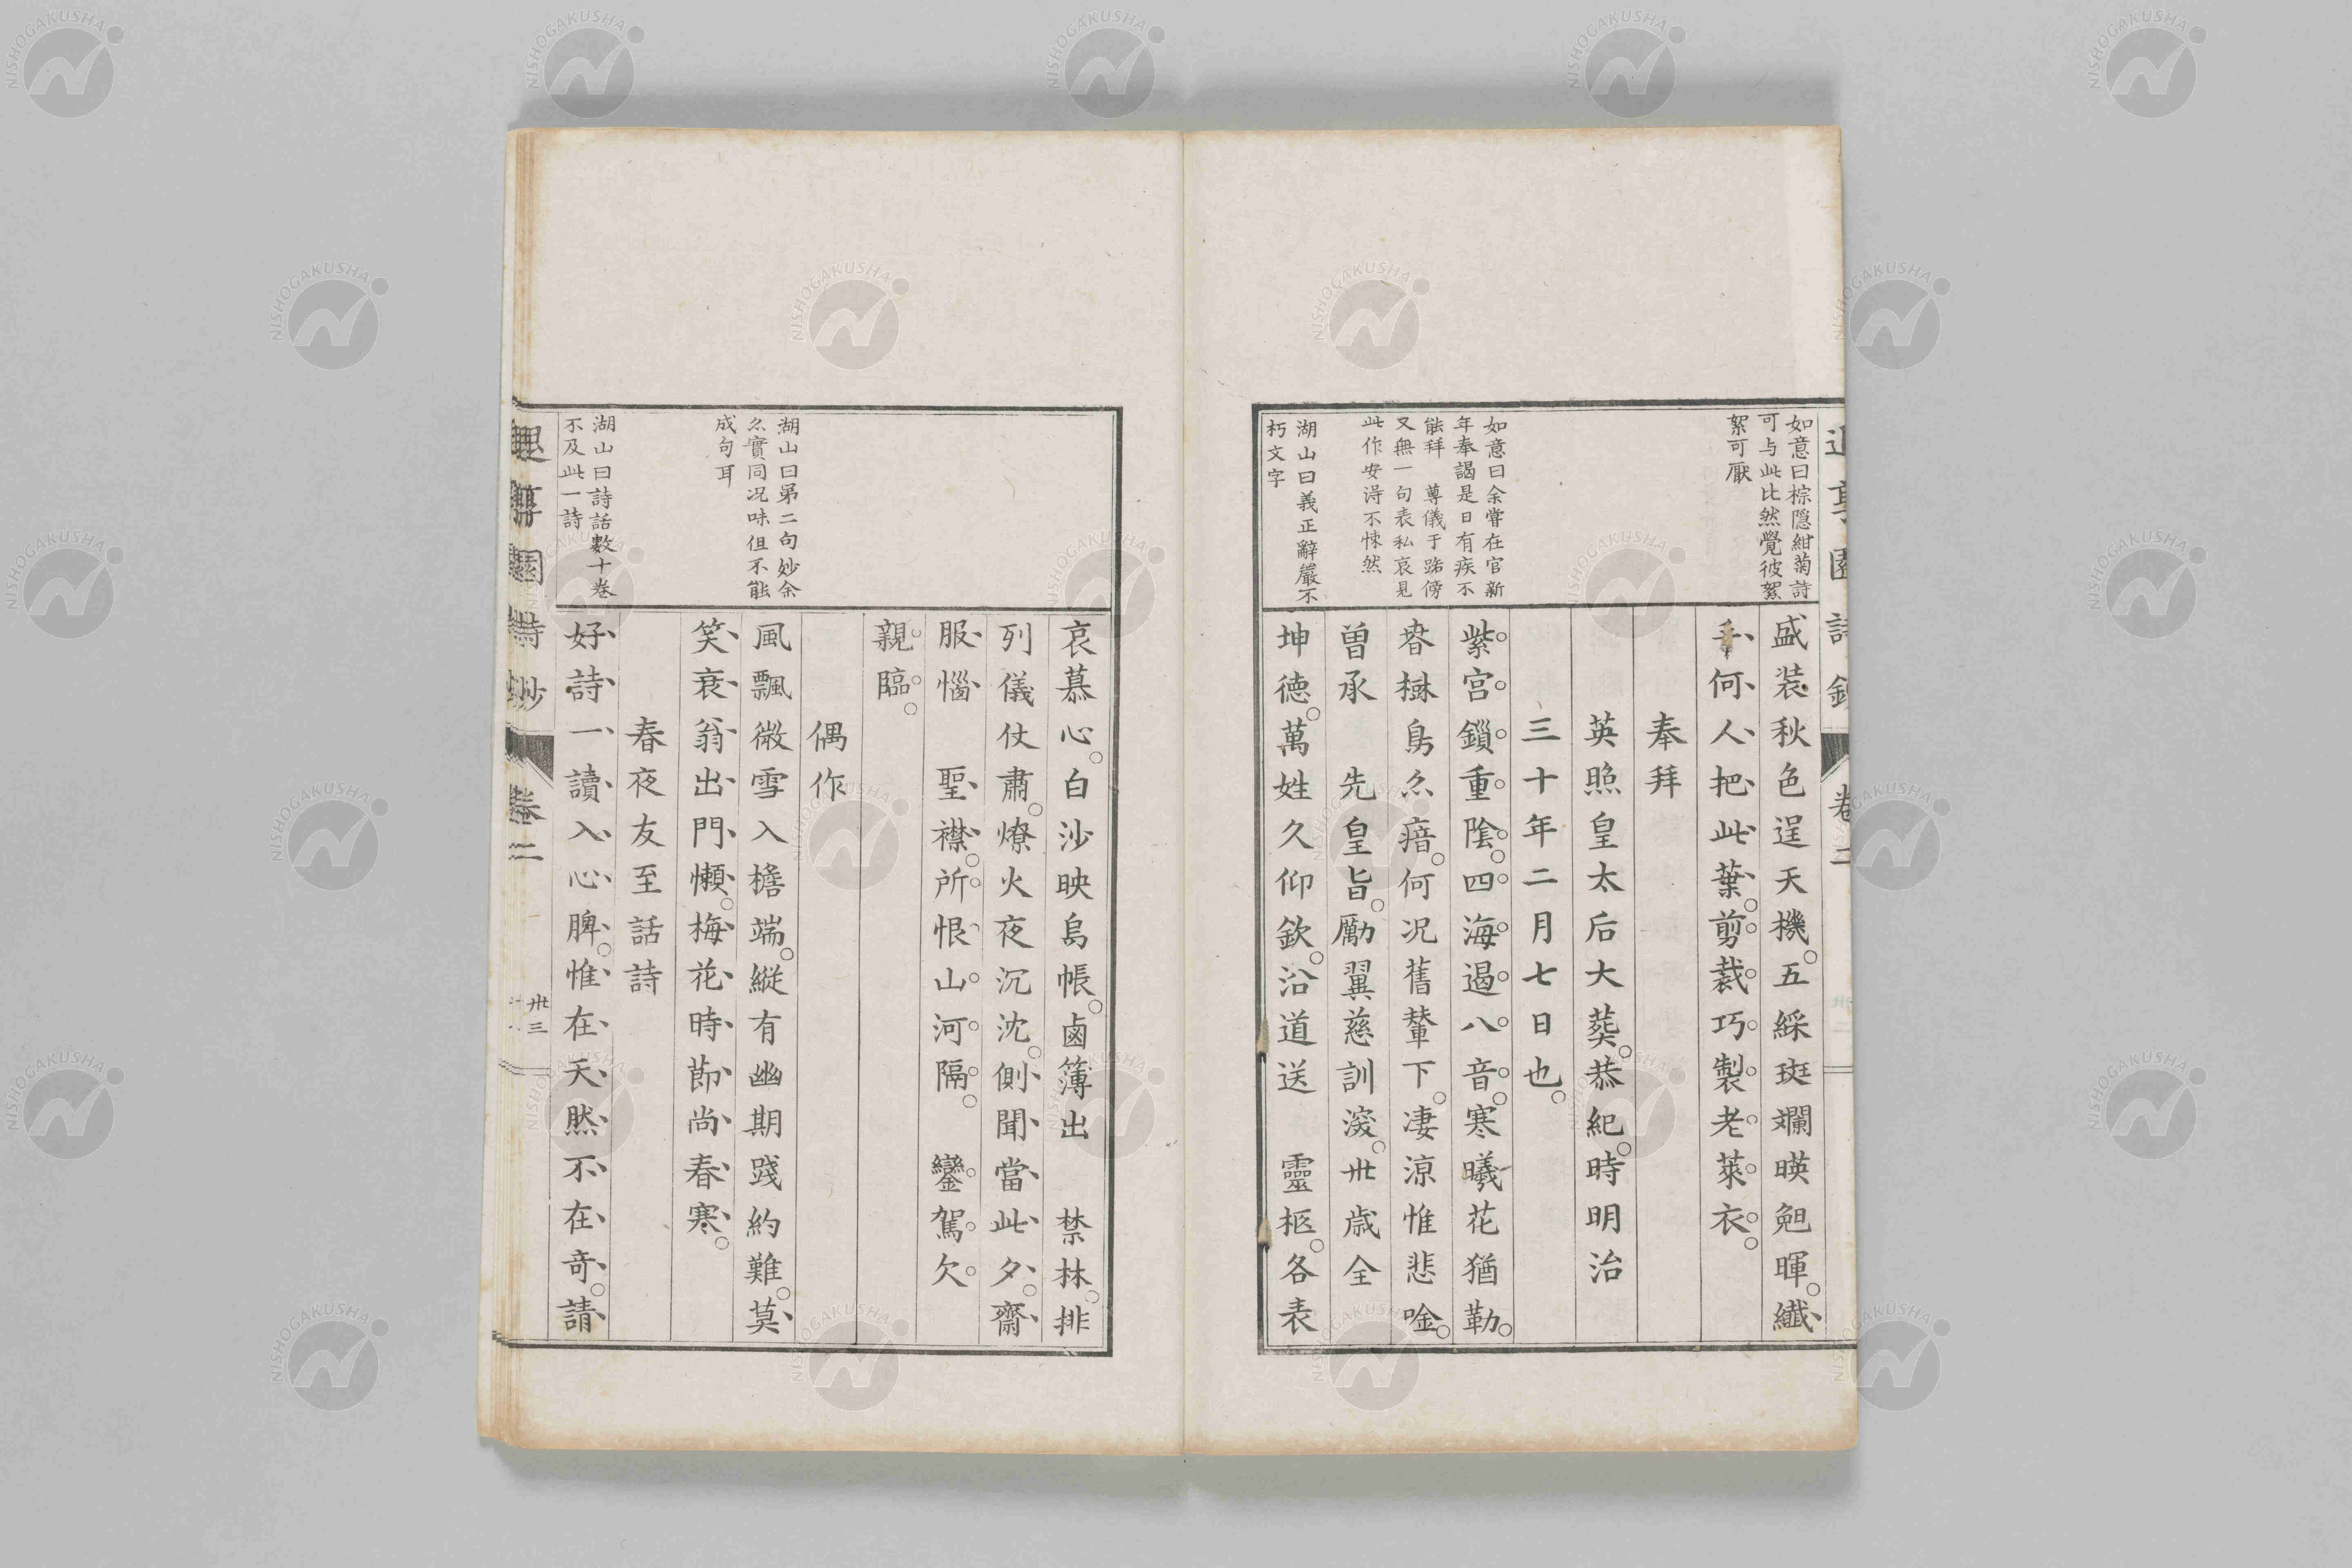 如意曰棕隠紺菊詩
可与此比然覺彼絮
絮可厭
如意曰余嘗在官新
年奉謁是日有疾不
能拜　尊儀于路傍
又無一句表私哀見
此作安淂不悚然
湖山曰義正辭嚴不
朽文字
盛装秋色逞天機。五綵斑斕暎曉暉。纖
手何人把此葉。剪裁巧製老萊衣。
奉拜
英照皇太后大葬。恭紀。時明治
三十年二月七日也。
紫宮鎖重陰。四海遏八音。寒曦花猶勒。
春樹鳥亦瘖。何况舊輦下。凄涼惟悲唫。
曽承　先皇旨。勵翼慈訓深。卅歳全
坤徳。萬姓久仰欽。沿道送　靈柩。各表
哀慕心。白沙映島帳。鹵簿出　禁林。排
列儀仗肅。燎火夜沉沈。側聞當此夕。齋
服惱　聖襟。所恨山河隔。　鑾駕欠
親臨。
偶作
風飄微雪入檐端。縦有幽期踐約難。莫
笑衰翁出門懶。梅花時節尚春寒。
春夜友至話詩
好詩一讀入心脾。惟在天然不在竒。請
湖山曰第二句妙余
亦實同况味但不能
成句耳
湖山曰詩話數十巻
不及此一詩
詩鈔
巻二
卅三
NISHOGAKUSHA